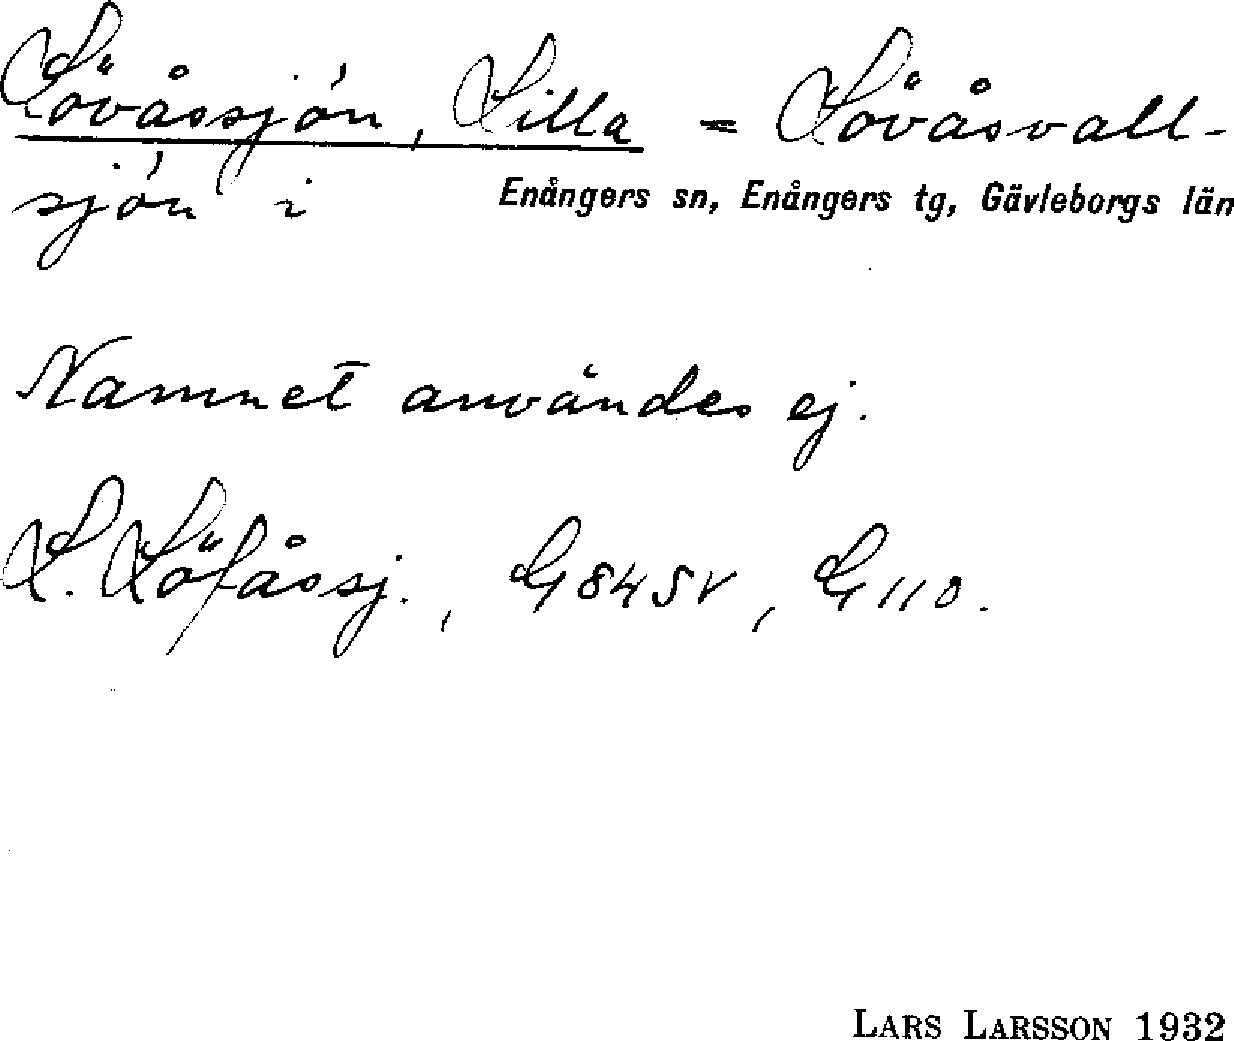 Lövåssjön, Lilla = Lövåsvall-
sjön i Enångers sn, Enångers tg, Gävleborgs län
Namnet användes ej.
L. Löfåssj., G 84 SV, G 110.
LARS LARSSON 1932